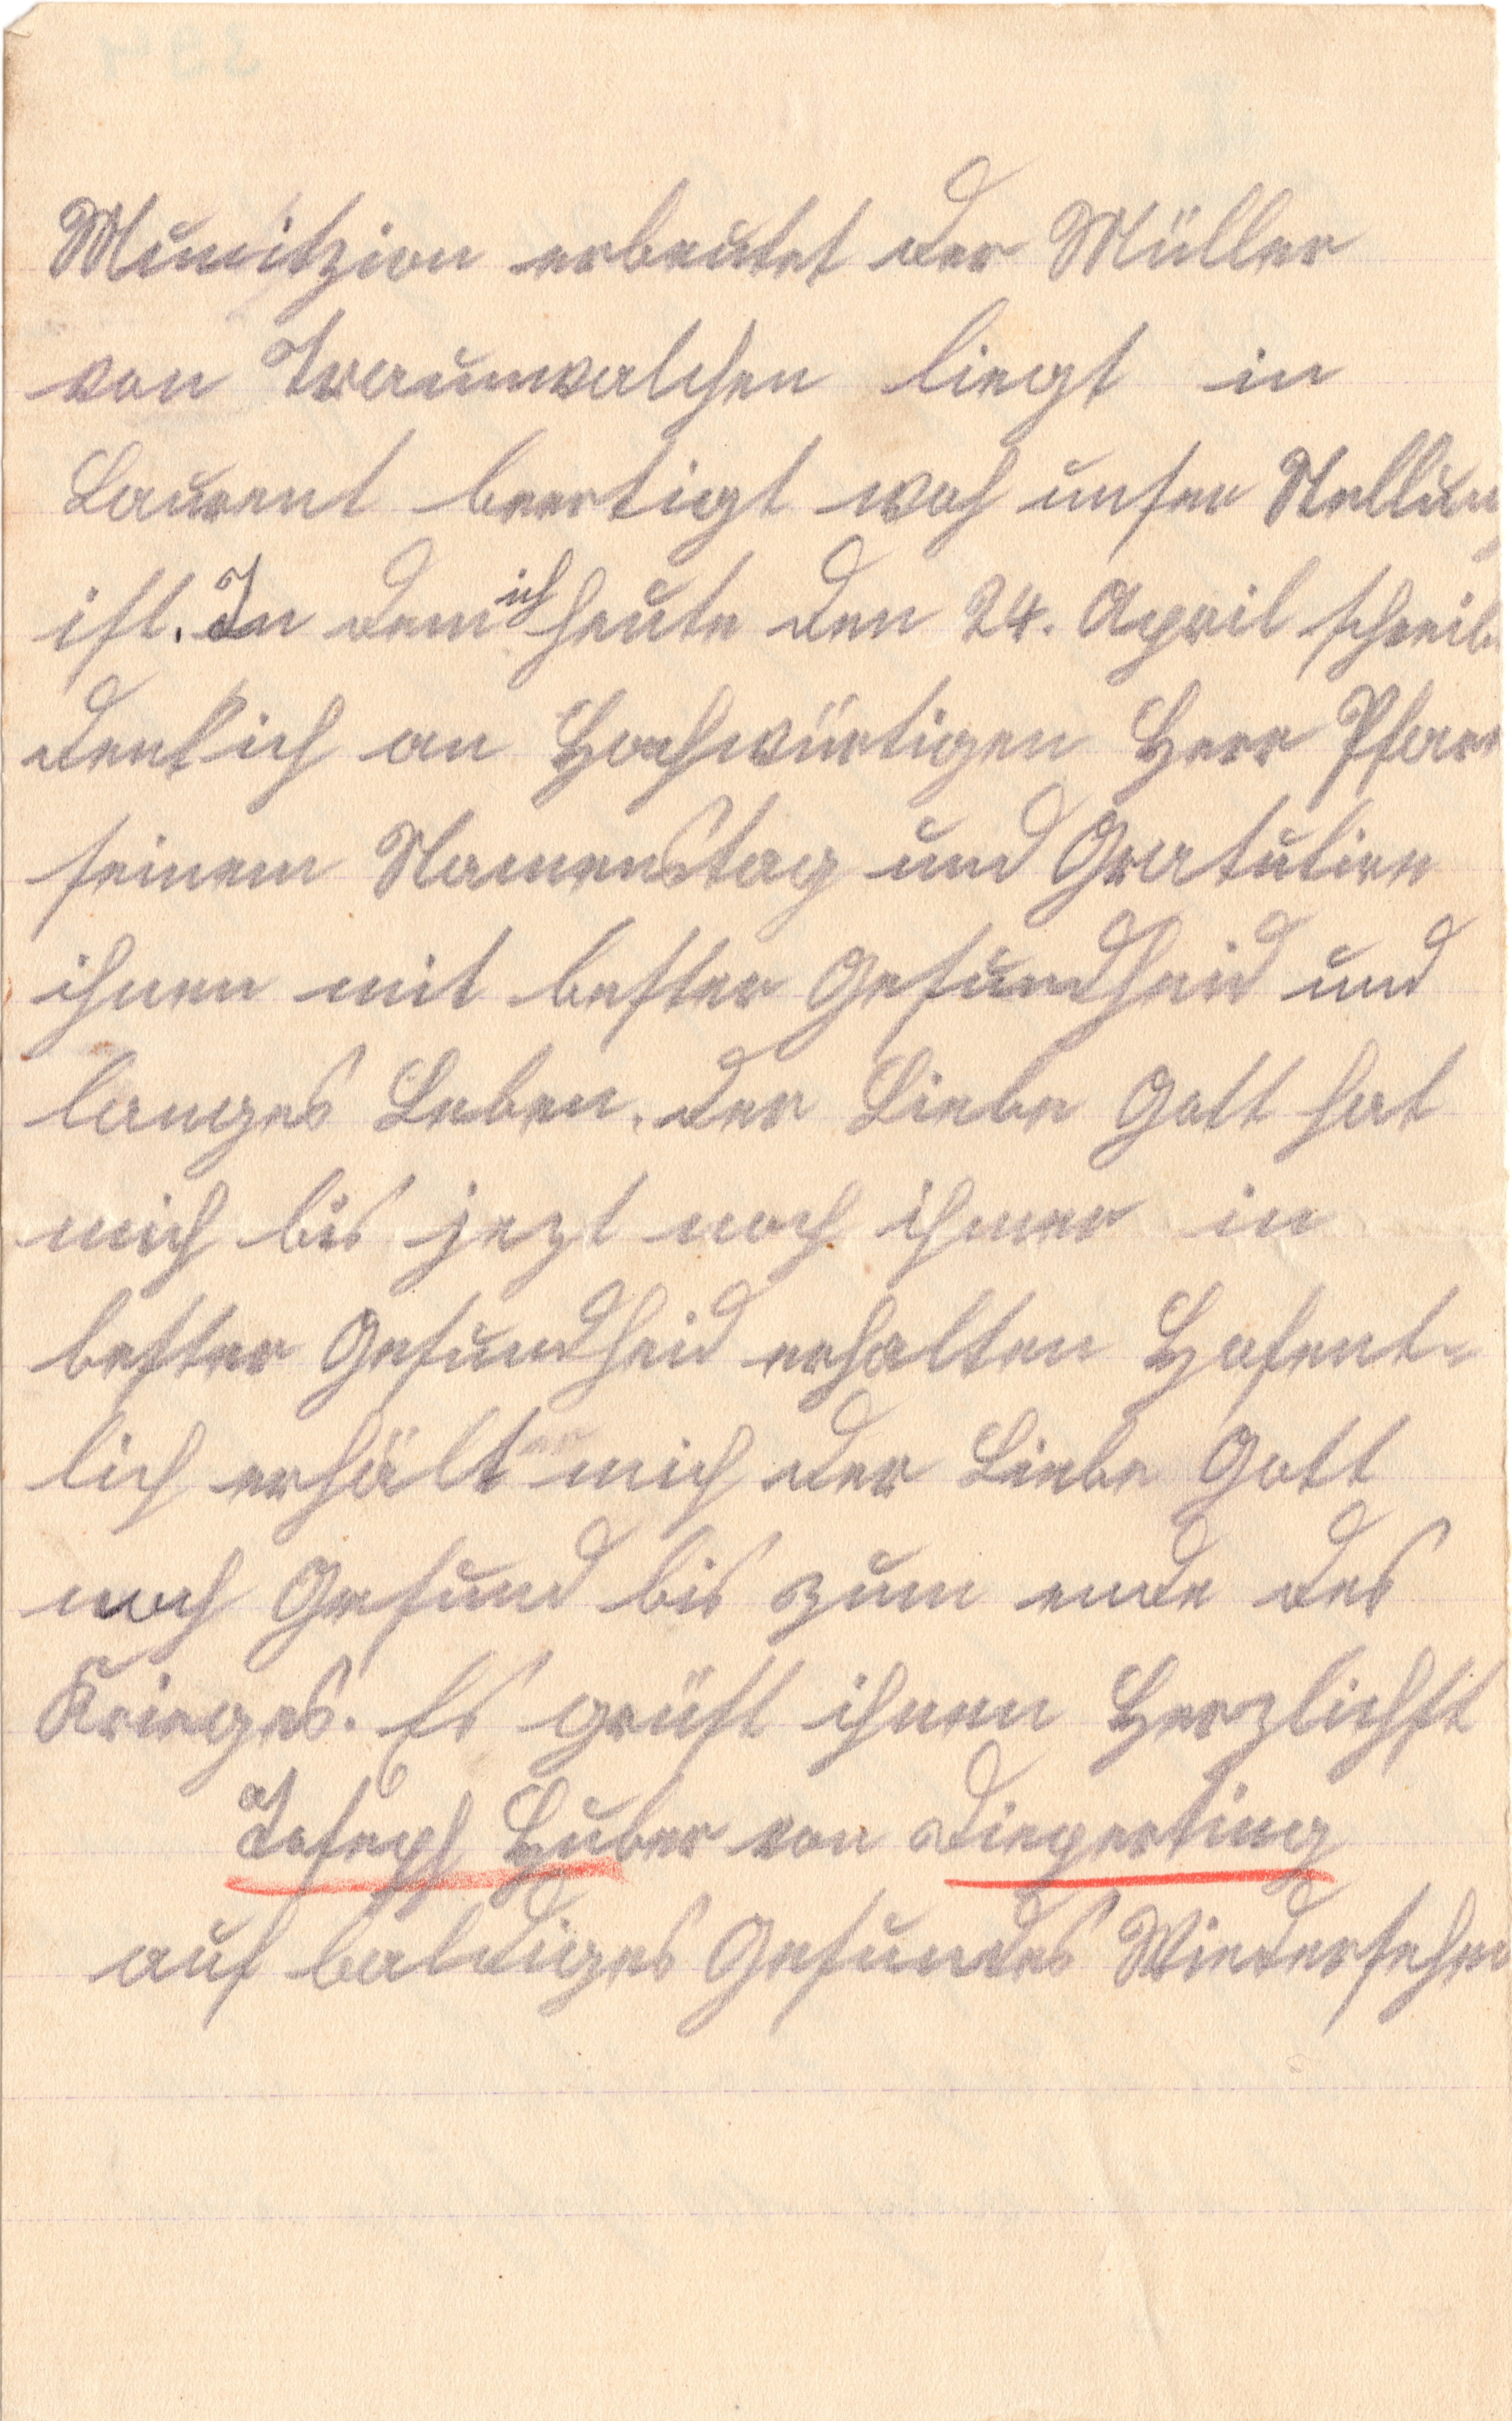 Munitzion erbeutet der Müller
von Traunwalchen liegt in
Laurent beertigt woh unser Stellung
ist. In dem ich heute den 24. April schreibe
denk ich an Hochwürtigen Herr Pfarr
seinem Namenstag und Gratuliere
ihnen mit bester Gesundheid und
langes Leben. der Liebe Gott hat
mich bis jezt noch ihmer in
bester Gesundheid erhalten Hofent-
lich erhält mich der Liebe Gott
noch Gesund bis zum ende des
Krieges. Es grüst ihnen Herzlichst
Joseph Huber von Diepertting
auf baldiges Gesundes Wiedersehen